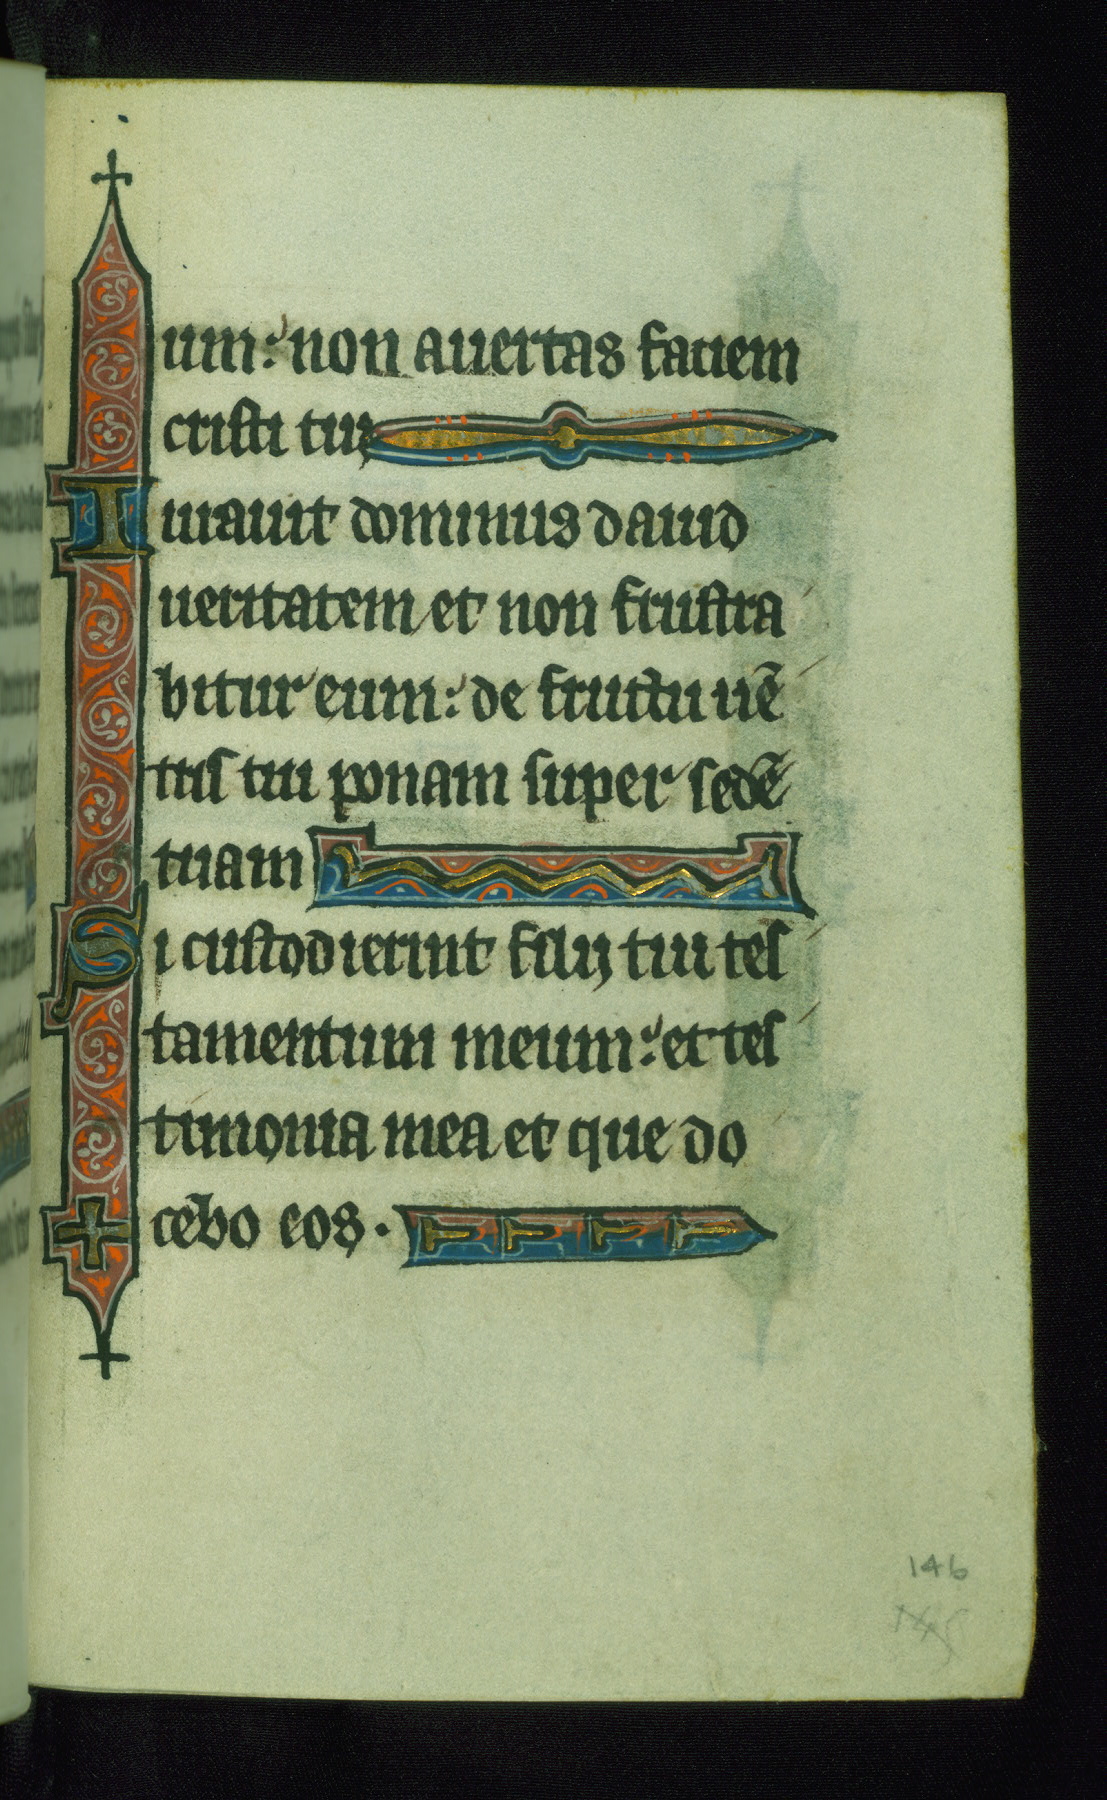 um: non auertas faciem
cristi tui
Iurauit dominus dauid
ueritatem et non frustra
bitur eum: de fructu uē
tris tui ponam super sedē
tuam
Si custodierint filij tui tes
tamentum meum: et tes
timonia mea et que do
cebo eos.
146